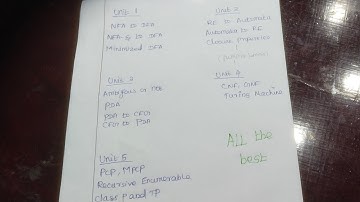 Unit 1
NFA to DFA
NFA ε to DFA
Minimized DFA
Unit 2
RE to Automata
Automata to RE
Closure Properties
Unit 3
Ambiguous or not
PDA
PDA to CFG
CFG to PDA
Unit 4
CNF, GNF
Turing Machine
Unit 5
PCP, MPCP
Recursive Enumerable
Class P and NP
All the
best